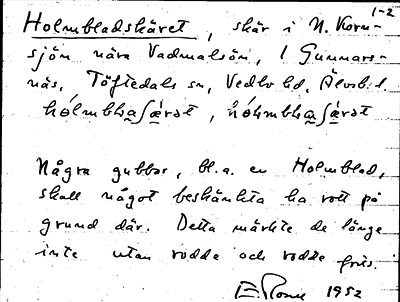 1-2
Holmbladskäret, skär i N. Korn-
sjön nära Vadmalsön, 1 Gunnars-
näs, Töftedals sn, Vedbo hd, Älvsb. l.
Några gubbar, bl.a. en Holmblad,
skall något beskänkta ha rott på
grund där. Detta märkte de länge
inte utan rodde och rodde
1952